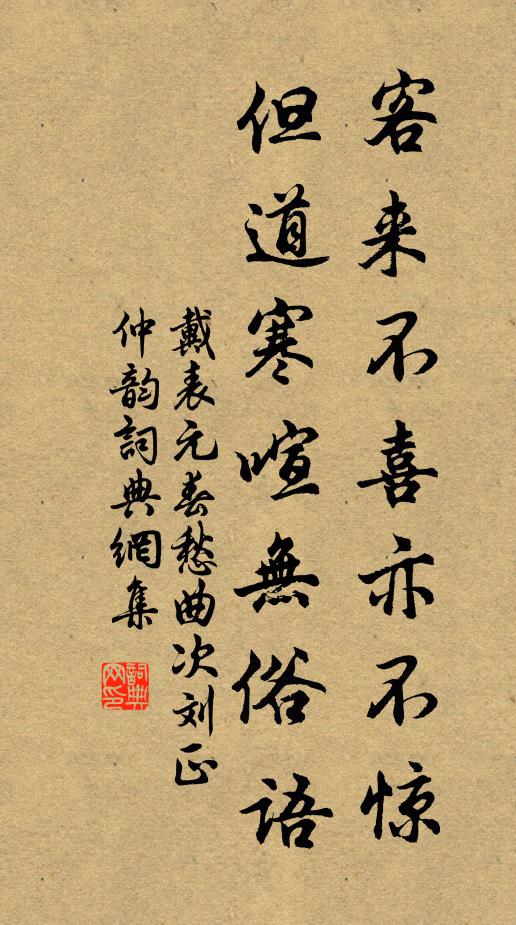 客来不喜亦不惊
但道寒喧無俗語
戴表元春愁曲次刘正
仲韵詞典網集
詞典
网印